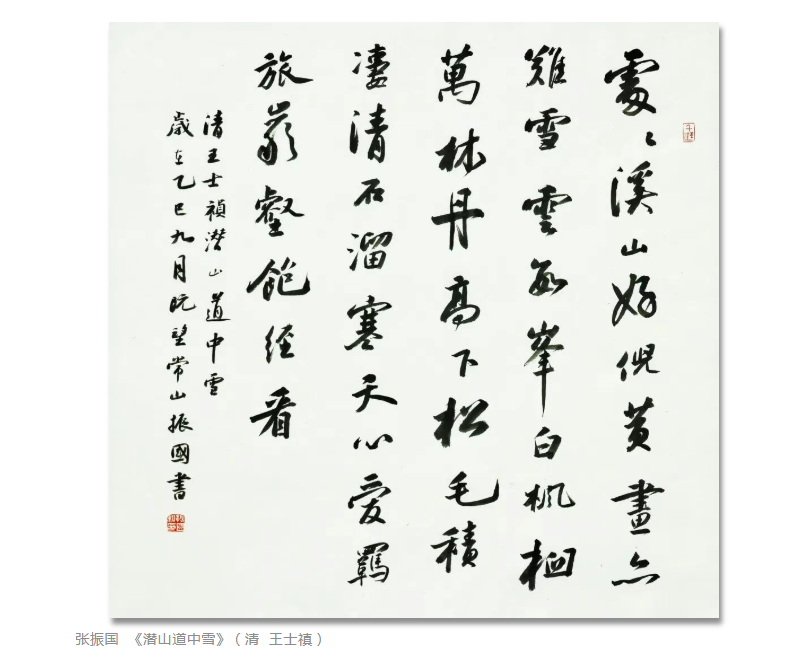 處〻溪山好倪黃畫亦
難雪雲每峯白楓桕
萬林丹高下松毛積
淒清石溜寒天心愛羈
旅巖壑飽經看
清王士禎潛山道中雪
歲在乙巳九月既望常山振國書
张振国 《潜山道中雪》（ 清 王士禛 ）